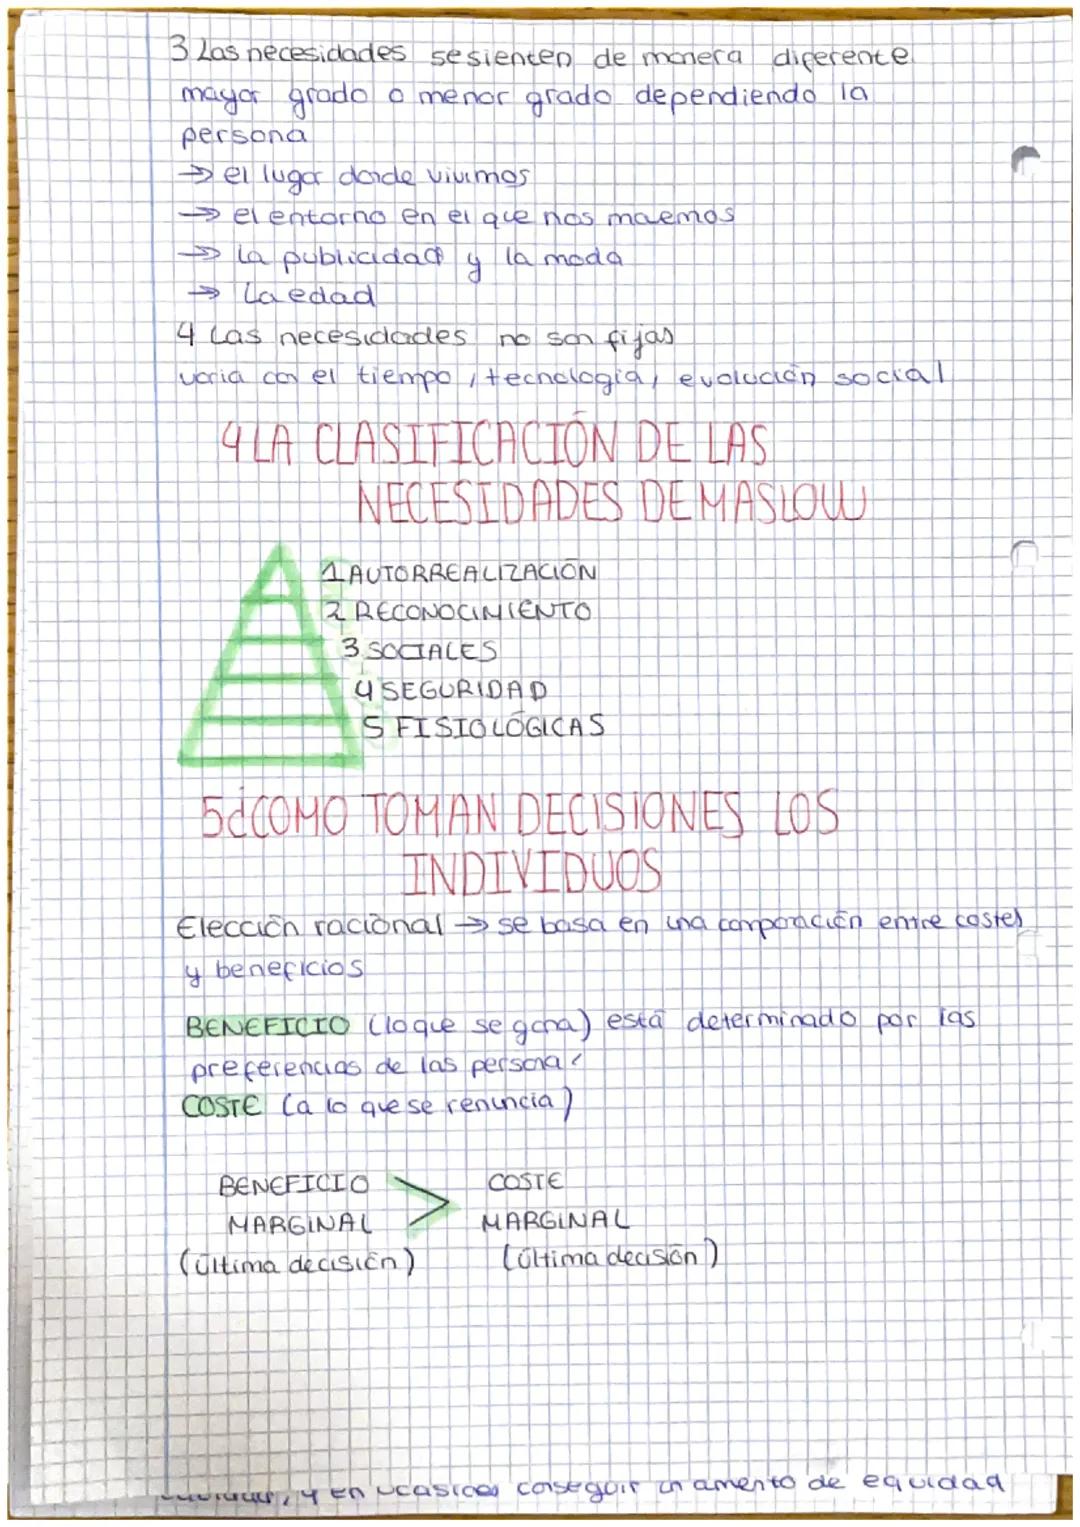 3 Las necesidades se sienten de manera diferente
mayor grado o menor grado dependiendo la
persona
→ el lugar donde vivimos
→ el entorno en el que nos maemos
→ La publicidad y la moda
→ La edad
4 Las necesidades no son fijas
varia con el tiempo, tecnologia, evolución social
4 LA CLASIFICACIÓN DE LAS
NECESIDADES DE MASLOW
1 AUTORREALIZACIÓN
2 RECONOCIMIENTO
3 SOCIALES
4 SEGURIDAD
5 FISIOLÓGICAS
5 ¿COMO TOMAN DECISIONES LOS
INDIVIDUOS
Elección racional → se basa en una comparación entre costes
y beneficios
BENEFICIO (lo que se gana) está determinado por las
preferencias de las persona
COSTE (a lo que se renuncia)
BENEFICIO > COSTE
MARGINAL MARGINAL
(última decisión) (última decisión)
, y en ucasioes conseguir un amento de equidad